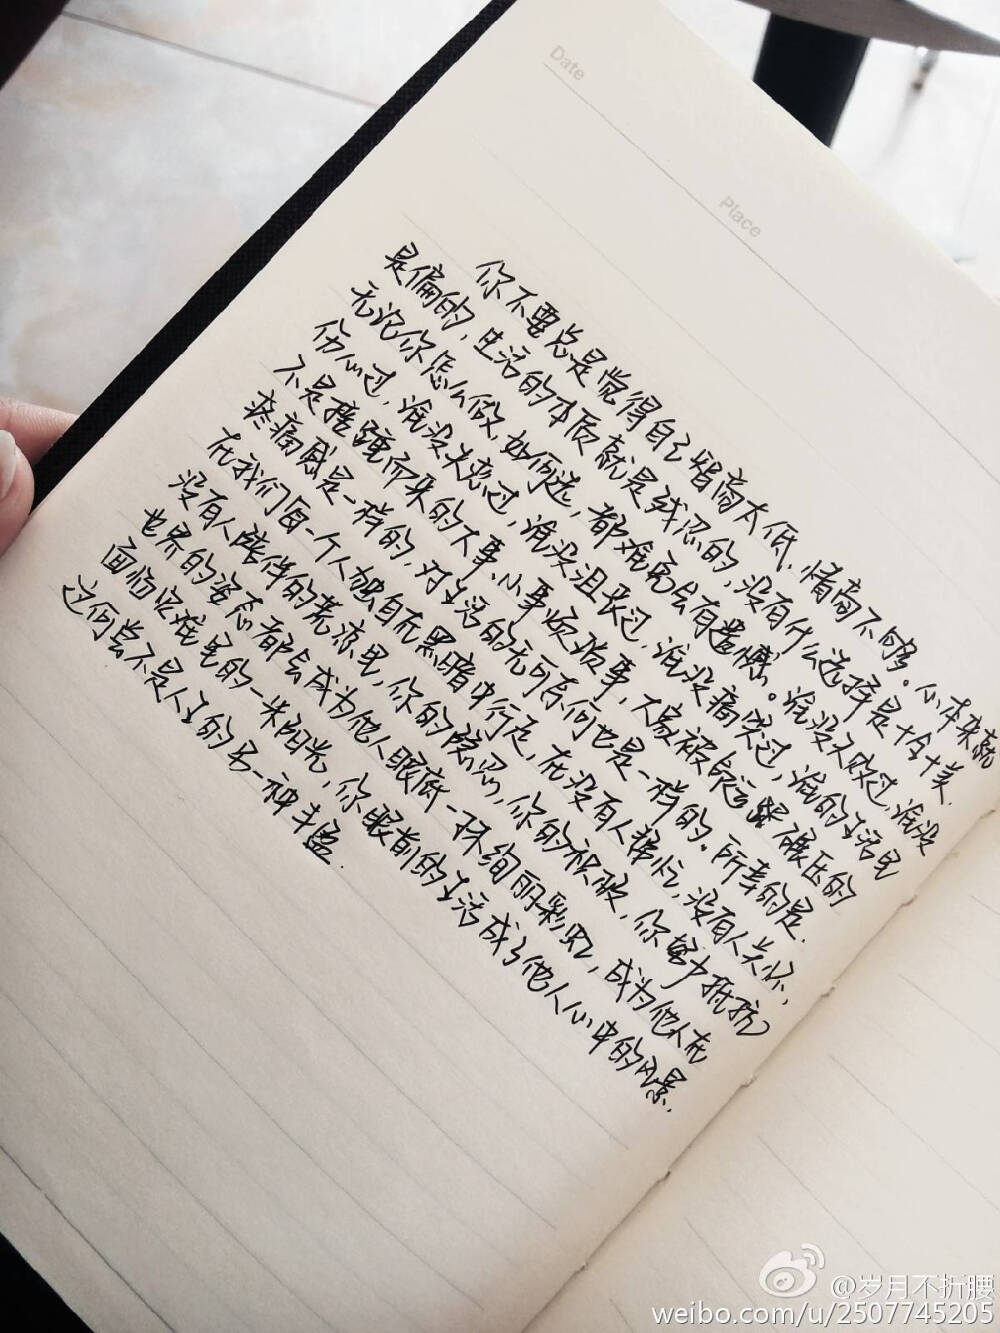 Date
Place
你不要总是觉得自己智商太低,情商不够。心本来就
是偏的,生活的本质就是残忍的,没有什么选择是十全十美.
无论你怎么做,如何选,都难免会有遗憾。谁没失败过,谁没
伤心过,谁没失恋过,谁没沮丧过,谁没痛哭过,谁的生活里
不是接踵而来的大事、小事烦琐事,大家被命运碾压的
疼痛感是一样的,对生活的无可奈何也是一样的。所幸的是.
在我们每一个人独自在黑暗中行走,在没有人帮忙,没有人关怀,
没有人陪伴的荒凉里,你的隐忍,你的积极,你努力抵抗
世界的姿态都会成为他人眼底一抹绚丽彩虹,成为他人在
面临灾难里的一米阳光,你眼前的生活成了他人心中的风景,
这何尝不是人生的另一种丰盈.
@岁月不折腰
weibo.com/u/2507745205